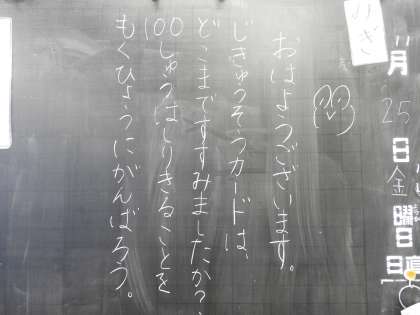 11月25日金曜日
日直
おはようございます。
じきゅうそうカードは、
どこまですすみましたか？
100しゅうはしりきることを
もくひょうにがんばろう。